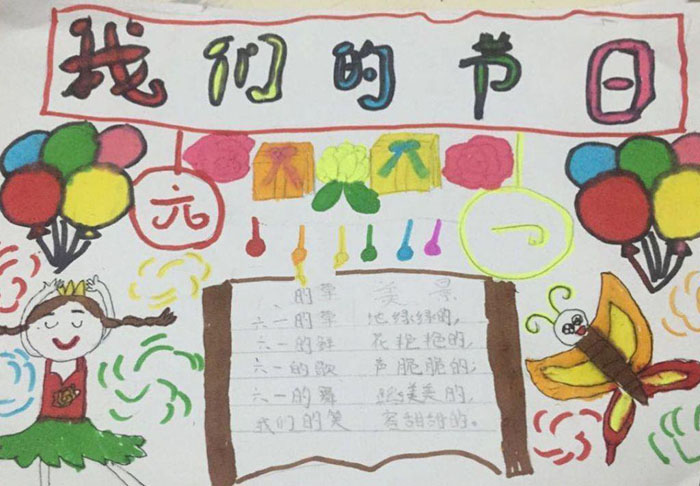 我们的节日
元 一
的草 美景
六一的草 地绿绿的，
六一的鲜 花艳艳的，
六一的歌 声脆脆的；
六一的舞 美美的，
我们的笑 容甜甜的。